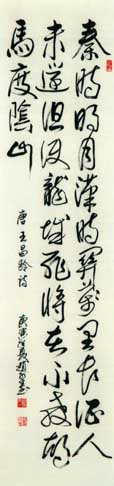 秦時明月漢時關萬里長征人
未還但使龍城飛將在不教胡
馬度陰山
唐王昌齡詩
庚寅